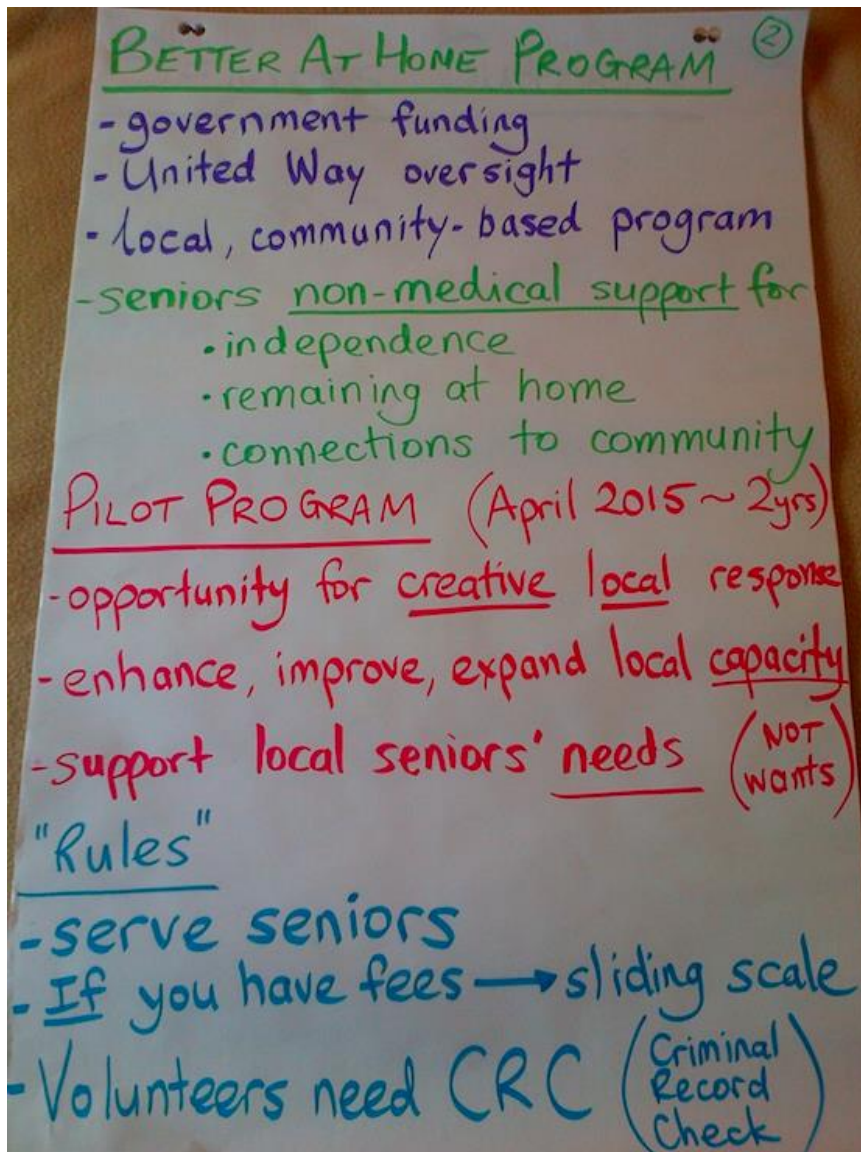 BETTER AT HOME PROGRAM ②
- government funding
- United Way oversight
- local, community-based program
- seniors non-medical support for
• independence
• remaining at home
• connections to community
PILOT PROGRAM (April 2015 ~ 2yrs)
- opportunity for creative local response
- enhance, improve, expand local capacity
- support local seniors' needs (NOT wants)
"Rules"
- serve seniors
- If you have fees → sliding scale
- Volunteers need CRC (Criminal Record Check)